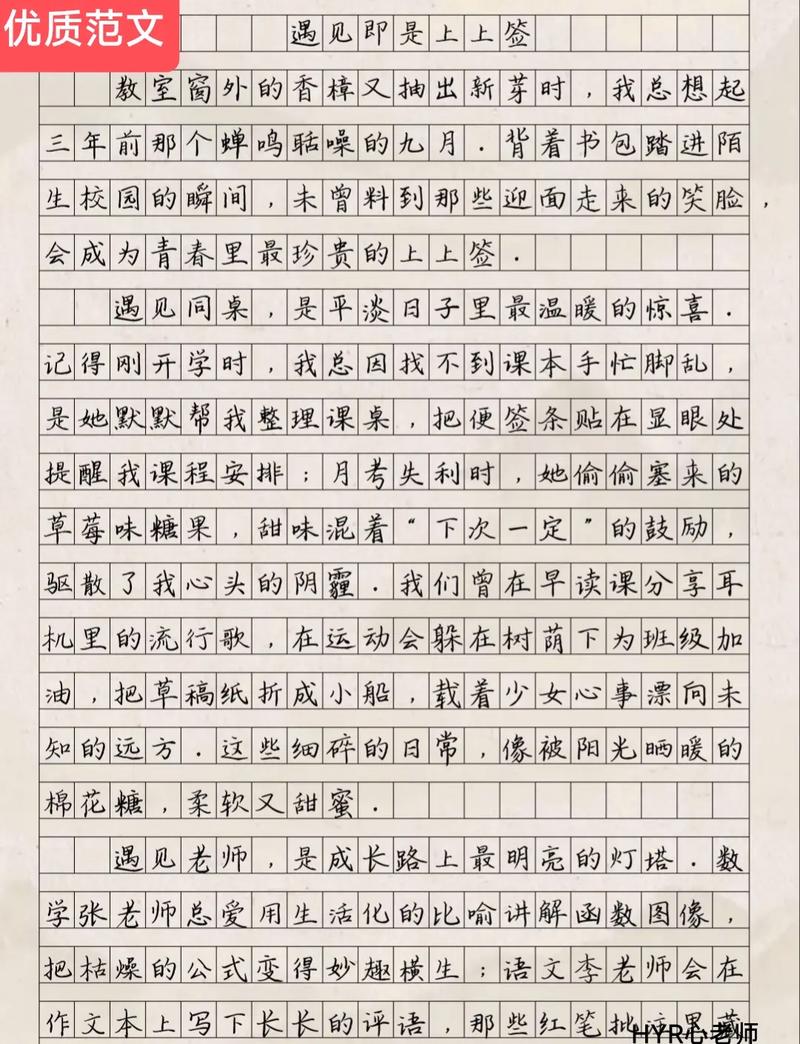 优质范文
遇见即是上上签
教室窗外的香樟又抽出新芽时，我总想起
三年前那个蝉鸣聒噪的九月．背着书包踏进陌
生校园的瞬间，未曾料到那些迎面走来的笑脸，
会成为青春里最珍贵的上上签．
遇见同桌，是平淡日子里最温暖的惊喜．
记得刚开学时，我总因找不到课本手忙脚乱，
是她默默帮我整理课桌，把便签条贴在显眼处
提醒我课程安排；月考失利时，她偷偷塞来的
草莓味糖果，甜味混着“下次一定”的鼓励，
驱散了我心头的阴霾．我们曾在早读课分享耳
机里的流行歌，在运动会躲在树荫下为班级加
油，把草稿纸折成小船，载着少女心事漂向未
知的远方．这些细碎的日常，像被阳光晒暖的
棉花糖，柔软又甜蜜．
遇见老师，是成长路上最明亮的灯塔．数
学张老师总爱用生活化的比喻讲解函数图像，
把枯燥的公式变得妙趣横生；语文李老师会在
作文本上写下长长的评语，那些红笔批注里藏
HYR心老师